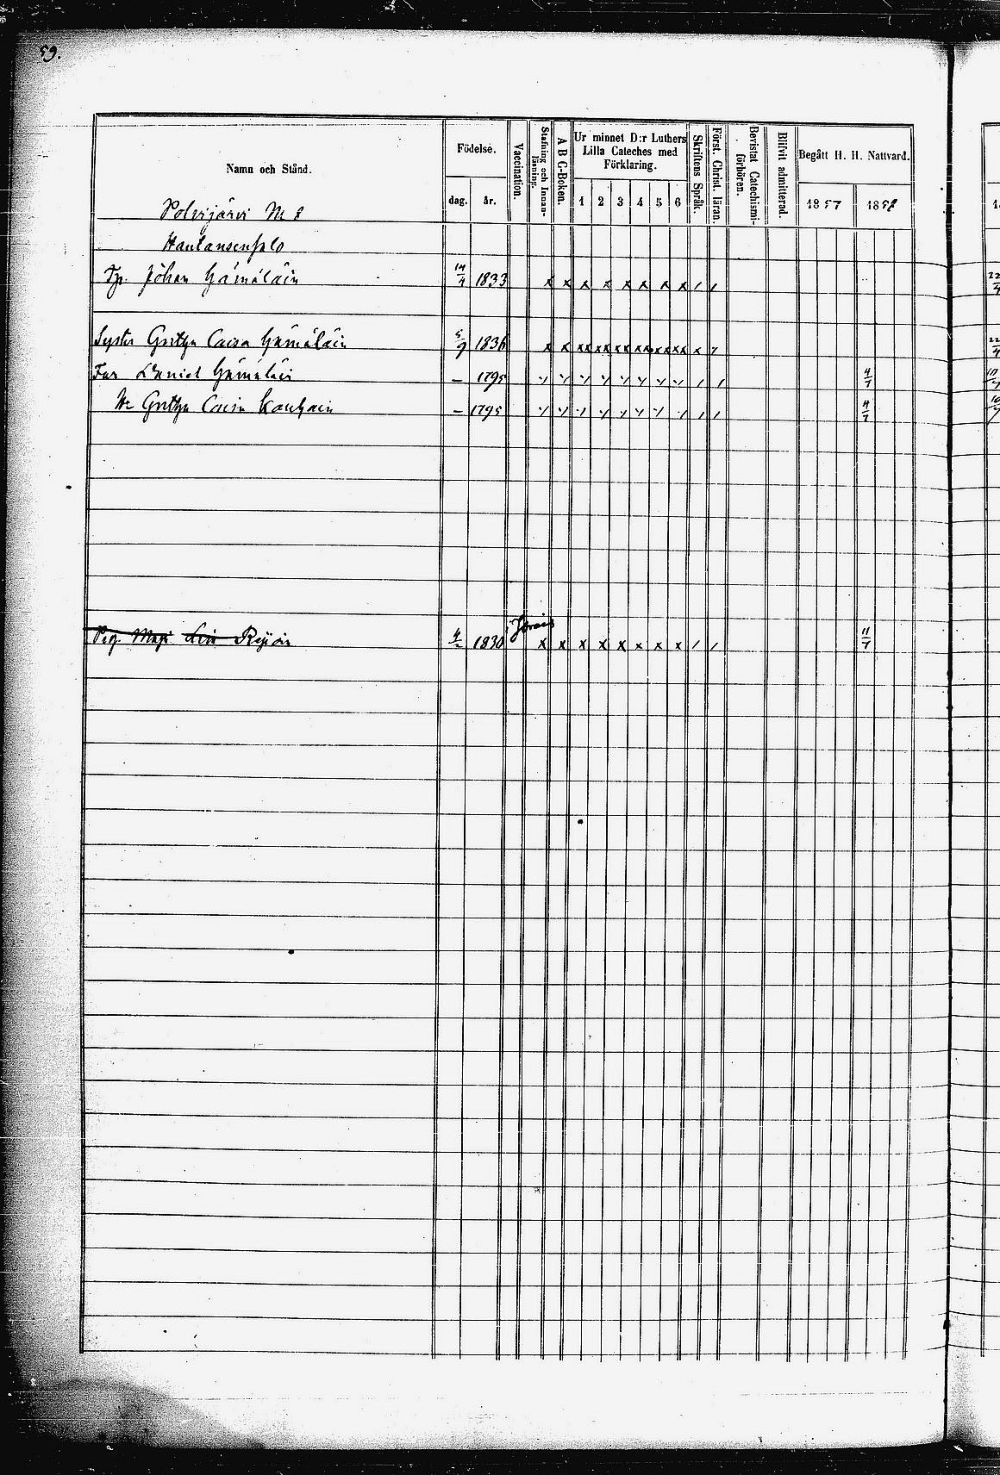 59.
Namn och Stånd.
Födelse.
dag.
år.
Vaccination.
Stafning och Innanläsning.
A B C-Boken.
Ur minnet D:r Luthers Lilla Cateches med Förklaring.
1 2 3 4 5 6
Skriftens Språk.
Först. Christ. läran.
Bevistat Catechismiförhören.
Blifvit admitterad.
Begått H. H. Nattvard.
1857 1858
Polvijärvi № 8
Hautansensalo
Johan Hämäläin 14/4 1833 x x x x x x x x / /
Syster Gretha Caisa Hämäläin 5/9 1836 x x xx xx xx xx xx xx x
Far Daniel Hämäläin — 1795 / /
Gretha Caisa — 1795 / /
Pig. Maja Lisa 1830 x x x x x x x x / / 11/7